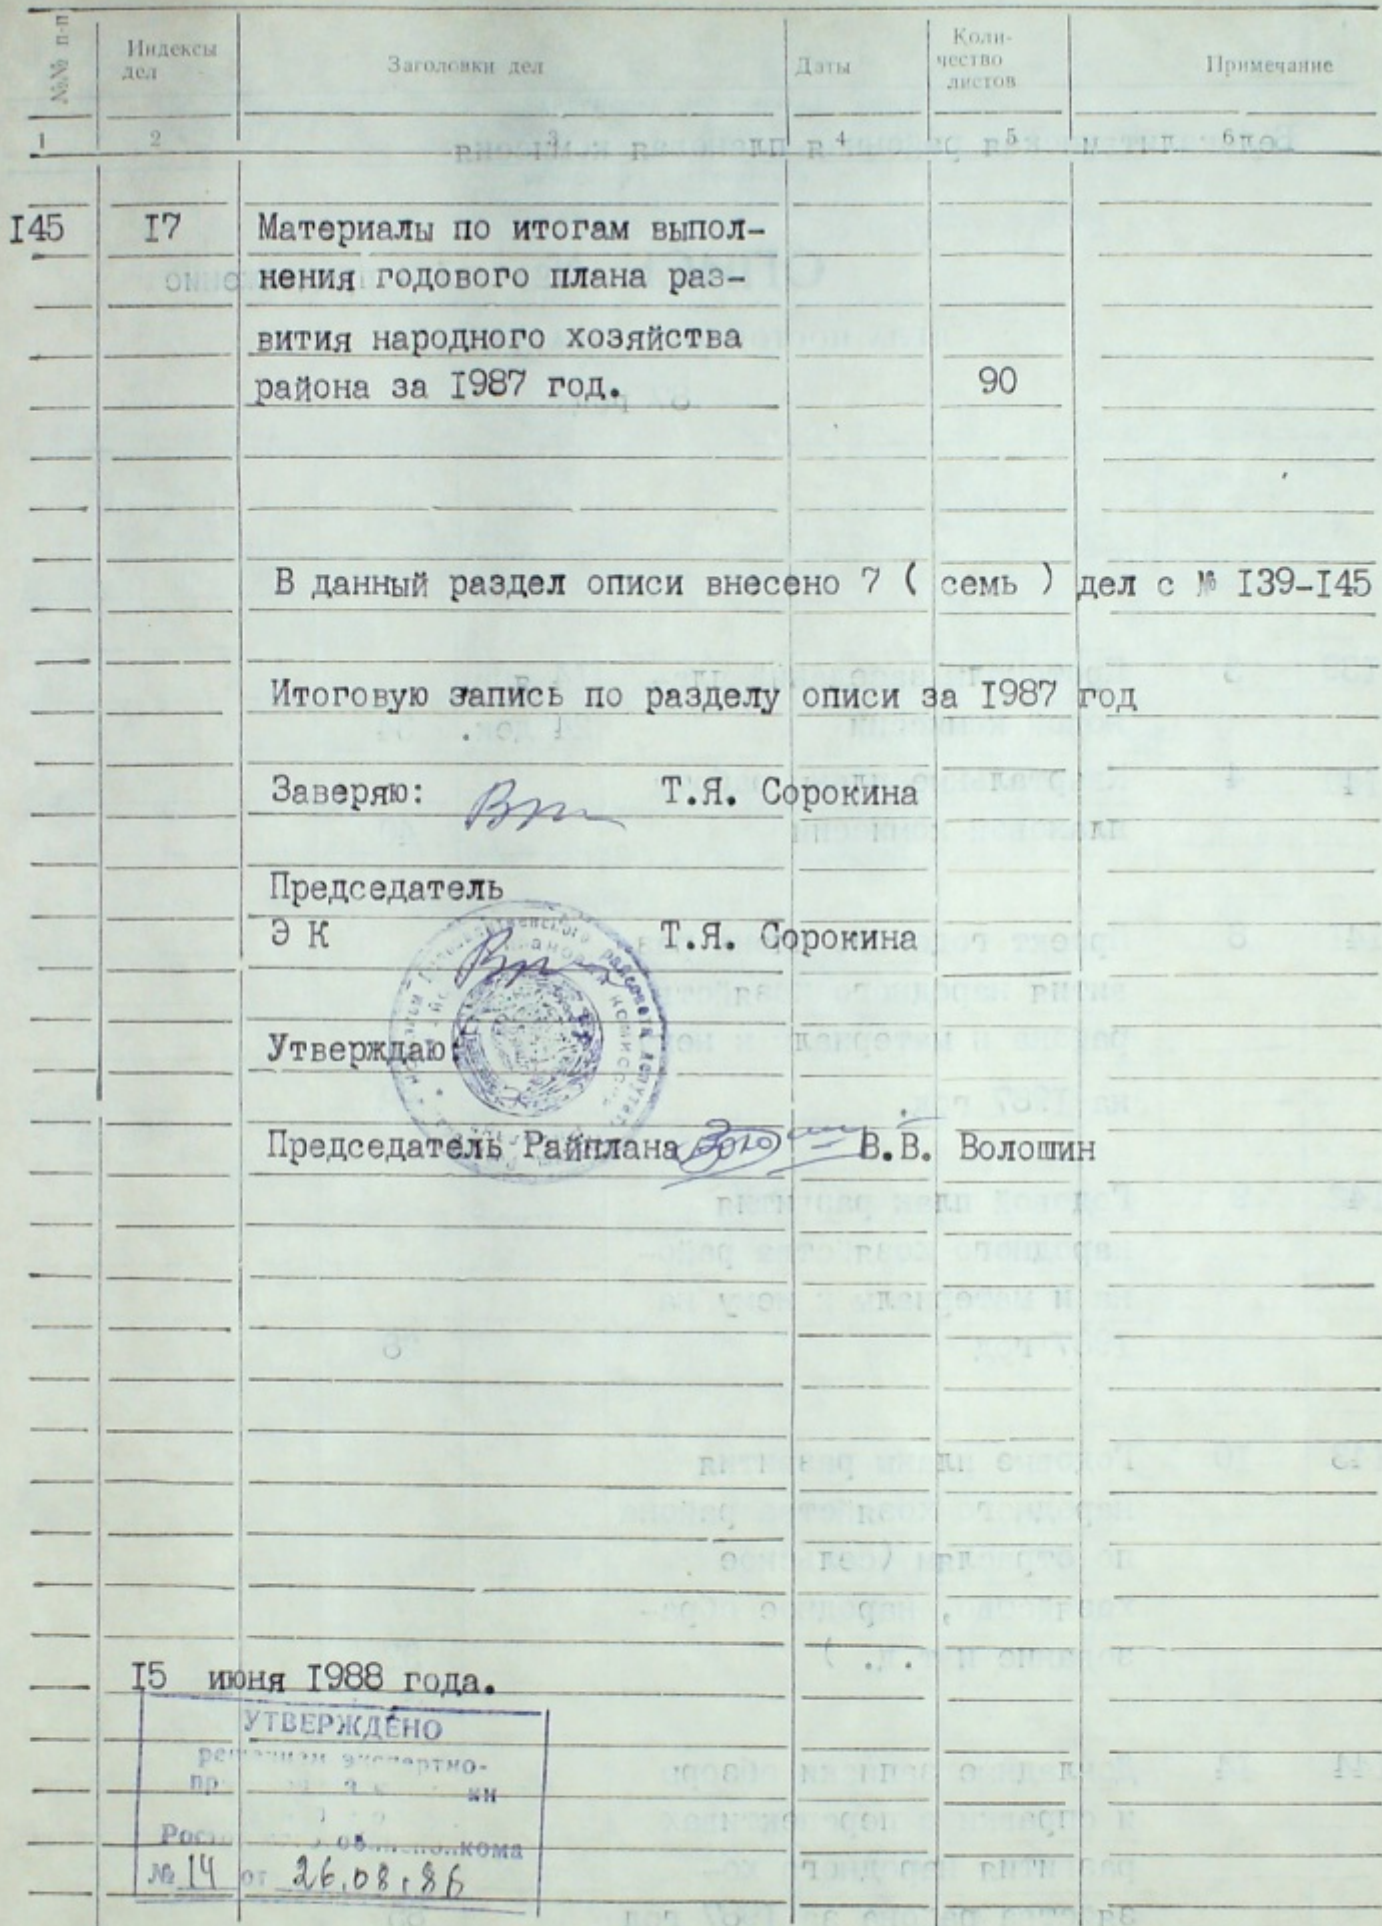 №№ п-п
Индексы
дел
Заголовки дел
Даты
Коли-
чество
листов
Примечание
1 2 3 4 5 6
I45 I7 Материалы по итогам выпол-
нения годового плана раз-
вития народного хозяйства
района за I987 год. 90
В данный раздел описи внесено 7 ( семь ) дел с № I39-I45
Итоговую запись по разделу описи за I987 год
Заверяю: Т.Я. Сорокина
Председатель
Э К Т.Я. Сорокина
Утверждаю:
Председатель Райплана В.В. Волошин
I5 июня I988 года.
УТВЕРЖДЕНО
решением экспертно-
№ 14 от 26.08.86